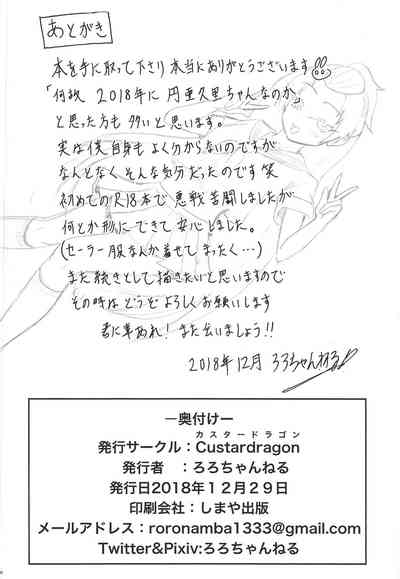 あとがき
本を手に取って下さり本当にありがとうございます
「何故 2018年に 円亜久里ちゃんなのか」
と思った方も多いと思います。
実は僕自身もよく分からないのですが
なんとなくそんな気分だったのです笑
初めてのR18本で悪戦苦闘しましたが
何とか形にできて安心しました。
(セーラー服なんか着せてまったく…)
また続きとして描きたいと思いますので
その時はどうぞよろしくお願いします
君に幸あれ! また会いましょう!!
2018年12月 ろろちゃんねる
ー奥付けー
カスタードラゴン
発行サークル：Custardragon
発行者　：ろろちゃんねる
発行日2018年12月29日
印刷会社：しまや出版
メールアドレス：roronamba1333@gmail.com
Twitter&Pixiv:ろろちゃんねる